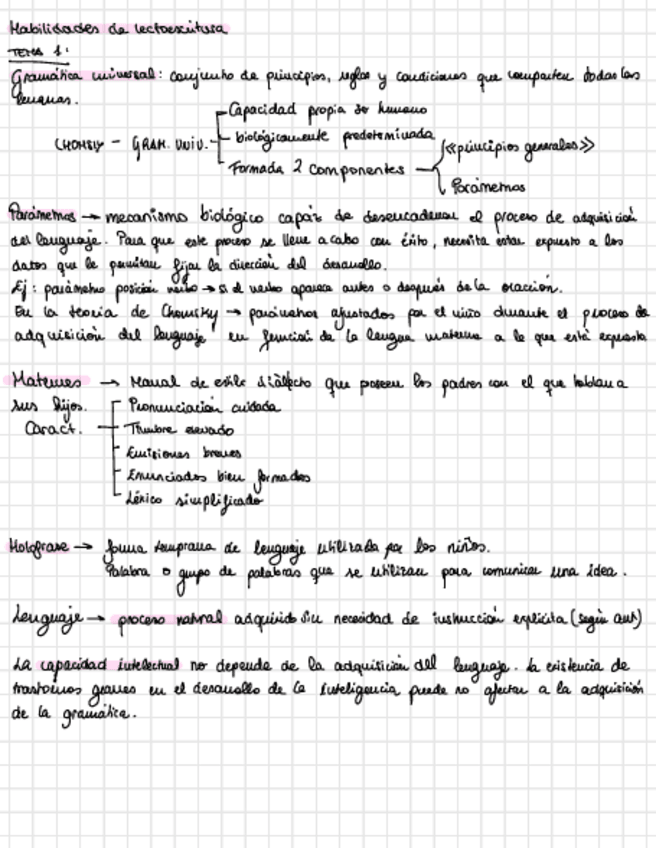 Habilidades de lectoescritura
TEMA 1:
Gramática universal: conjunto de principios, reglas y condiciones que comparten todas las
lenguas.
Capacidad propia ser humano
CHOMSKY - GRAM. UNIV. - biológicamente predeterminada
Formada 2 componentes
<<principios generales>>
Parámetros
Parámetros → mecanismo biológico capaz de desencadenar el proceso de adquisición
del lenguaje. Para que este proceso se lleve a cabo con éxito, necesita estar expuesto a los
datos que le permitan fijar la dirección del desarrollo.
Ej: parámetro posición verbo → si el verbo aparece antes o después de la oración.
En la teoría de Chomsky → parámetros ajustados por el niño durante el proceso de
adquisición del lenguaje en función de la lengua materna a la que está expuesto
→ Manual de estilo dialecto que poseen los padres con el que hablan a
sus hijos.
Caract.
Pronunciación cuidada
Thimbre elevado
Emisiones breves
Enunciados bien formados
Léxico simplificado
Holofrase → forma temprana de lenguaje utilizada por los niños.
Palabra o grupo de palabras que se utilizan para comunicar una idea.
Lenguaje → proceso natural adquirido sin necesidad de instrucción explícita (según aut)
La capacidad intelectual no depende de la adquisición del lenguaje. La existencia de
trastornos graves en el desarrollo de la inteligencia puede no afectar a la adquisición
de la gramática.